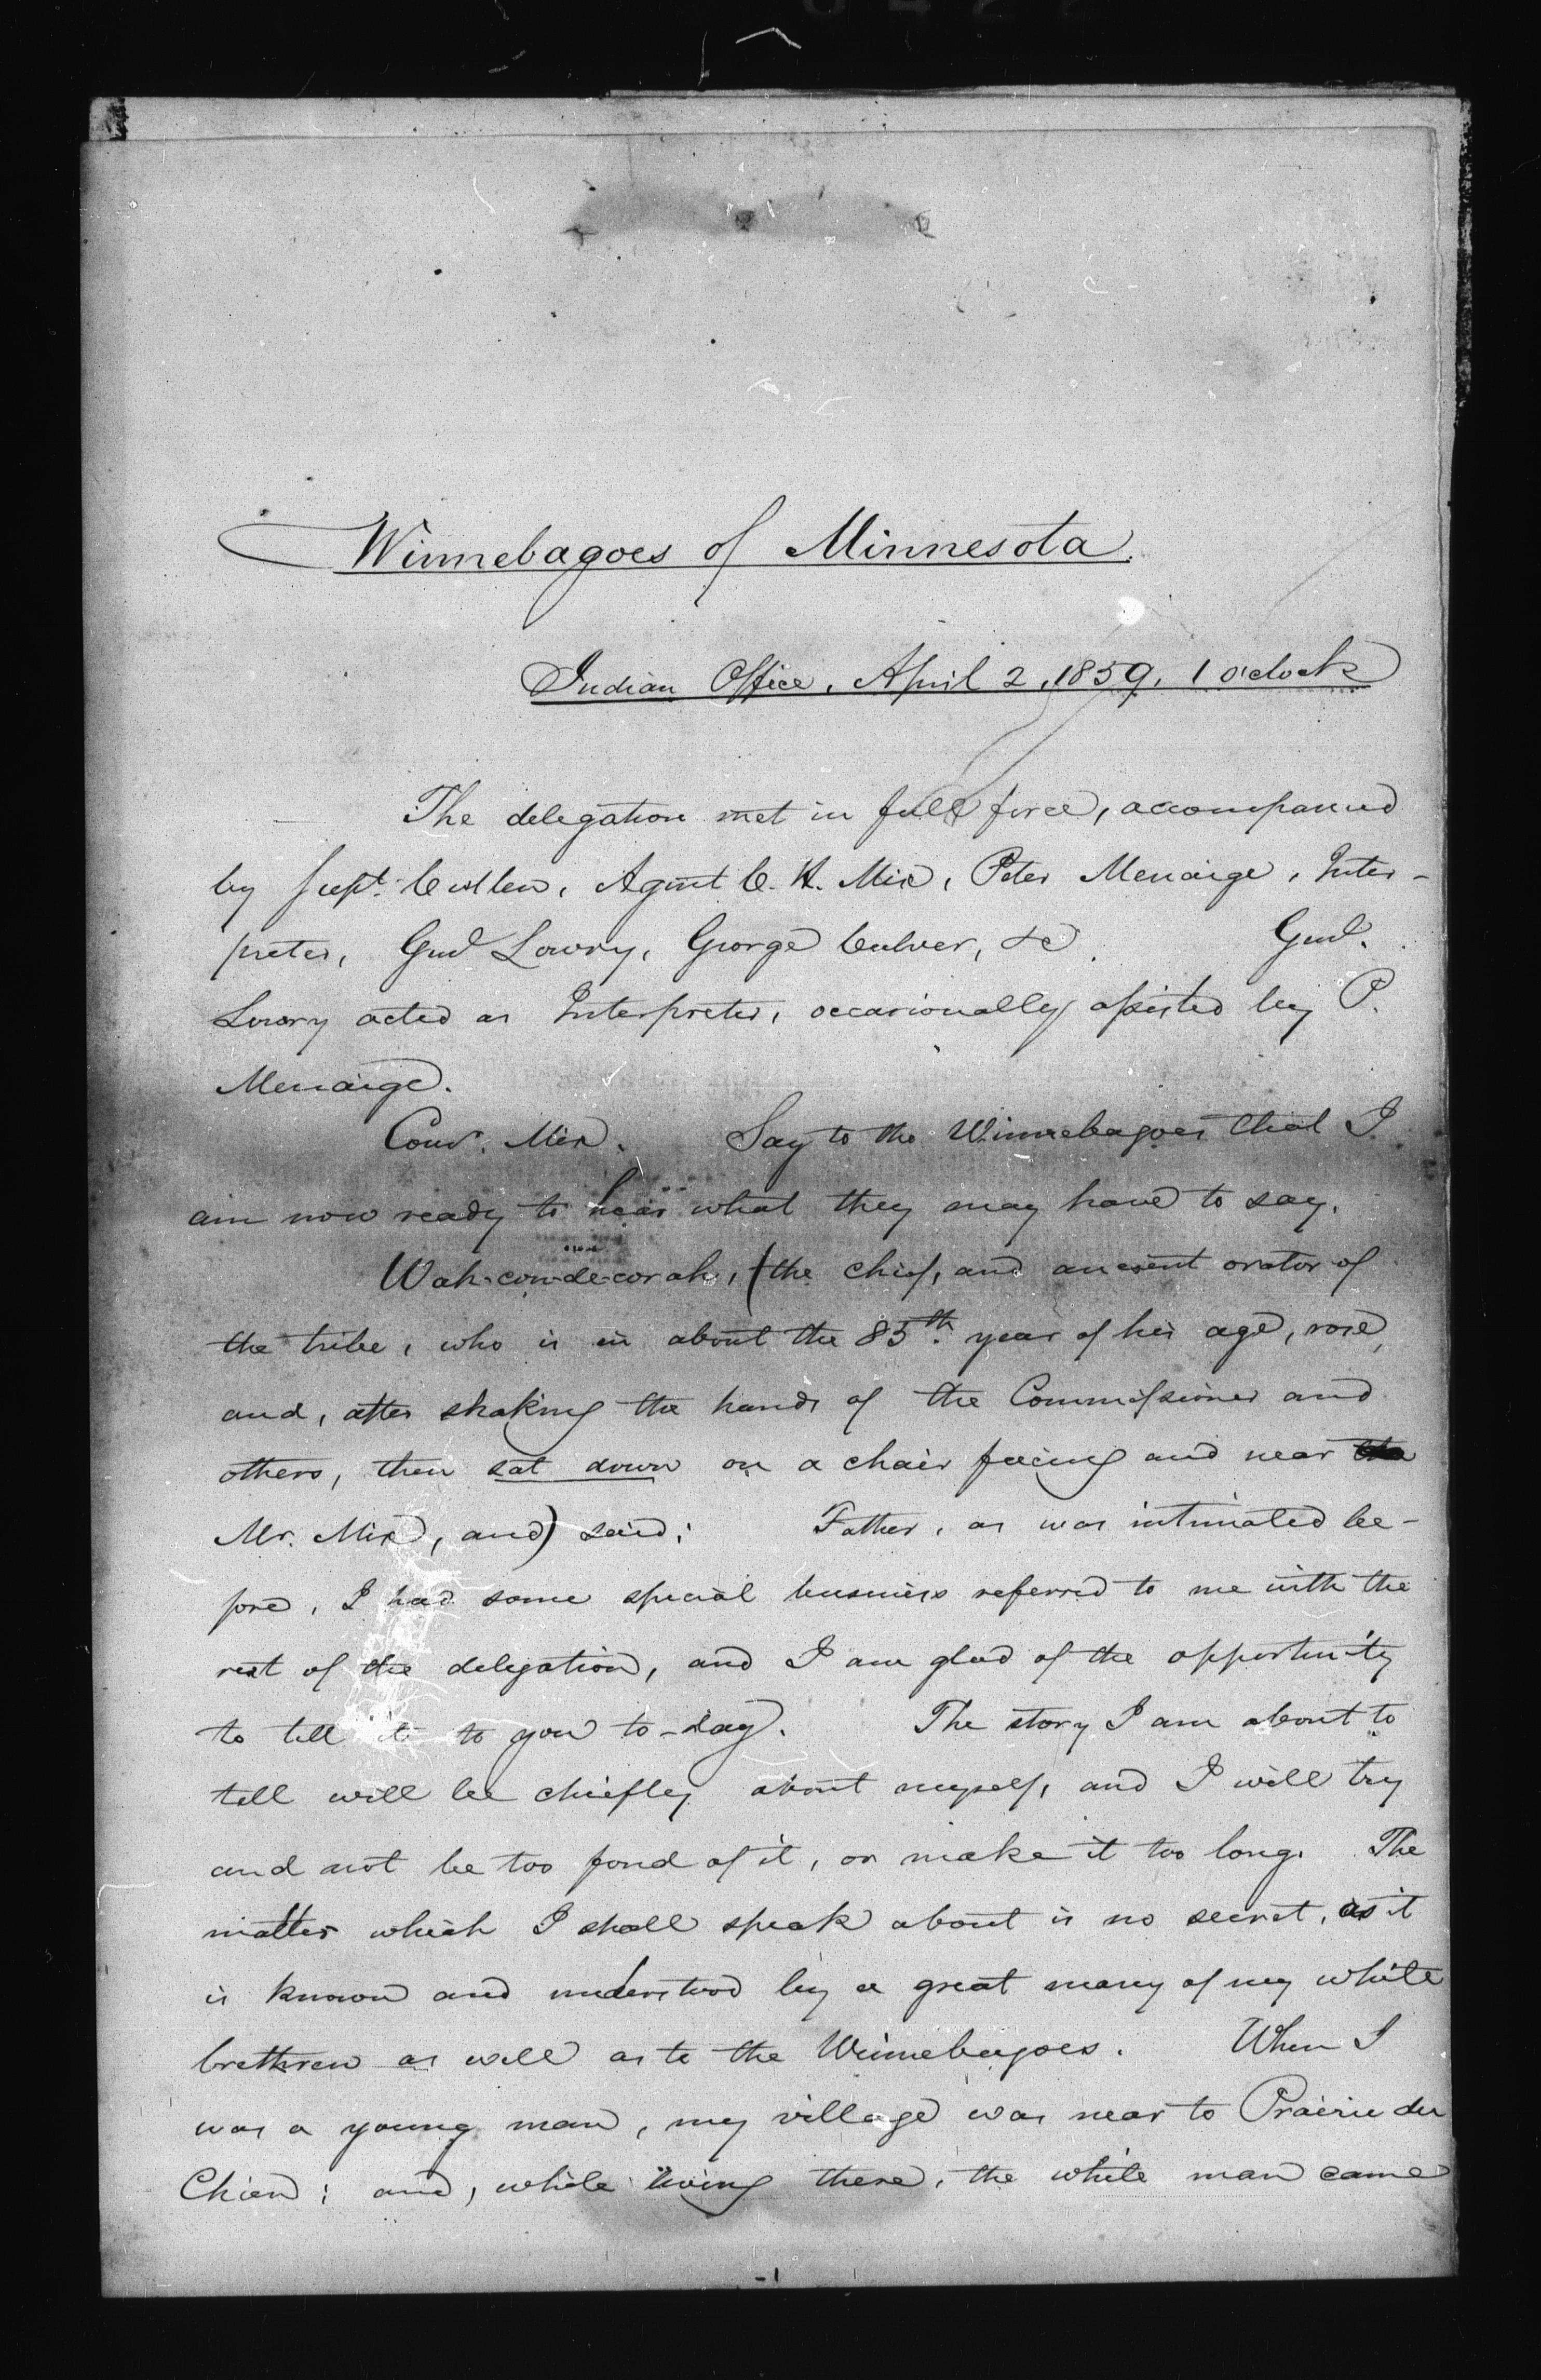 Winnebagoes of Minnesota.
Indian Office, April 2, 1859, 1 o'clock
The delegation met in full force, accompanied
by Supt. Cullen, Agent C. H. Mix, Peter Menaige, Inter-
preter, Genl Lowry, George Culver, &c. Genl.
Lowry acted as Interpreter, occasionally assisted by P.
Menaige.
Comr. Mix. Say to the Winnebagoes that I
am now ready to hear what they may have to say.
Wah-con-de-corah, (the chief, and ancient orator of
the tribe, who is in about the 85th. year of his age, rose,
and, after shaking the hands of the Commissioner and
others, then sat down on a chair facing and near
Mr. Mix, and) said: Father, as was intimated be-
fore, I had some special business referred to me with the
rest of the delegation, and I am glad of the opportunity
to tell it to you to-day. The story I am about to
tell will be chiefly about myself, and I will try
and not be too fond of it, or make it too long. The
matter which I shall speak about is no secret, as it
is known and understood by a great many of my white
brethren as well as to the Winnebagoes. When I
was a young man, my village was near to Prairie du
Chien; and, while living there, the white man came
-1